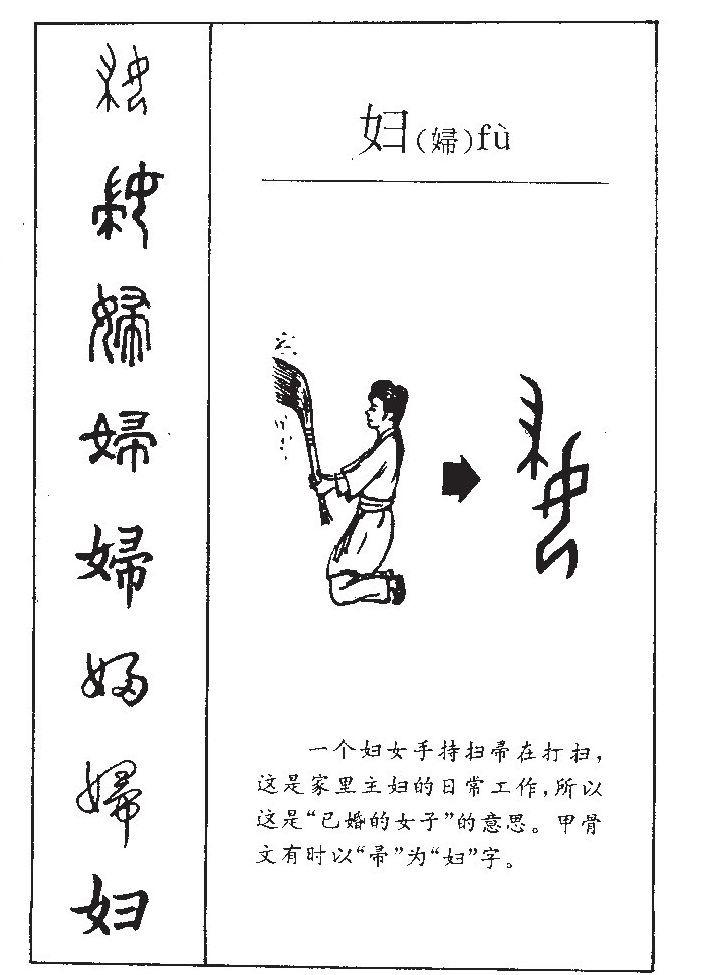 妇(婦)fù
一个妇女手持扫帚在打扫，
这是家里主妇的日常工作，所以
这是“已婚的女子”的意思。甲骨
文有时以“帚”为“妇”字。
婦
婦
婦
婦
婦
妇